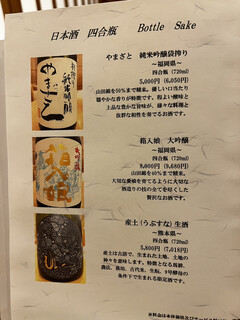 日本酒 四合瓶 Bottle Sake
やまざと 純米吟醸袋搾り
～福岡県～
四合瓶（720ml）
5,000円（6,050円）
山田錦を50％まで精米。優しい口当たり
穏やかな香りが特徴です。
上品な豊かな旨味が、様々な料理と
抜群な相性を奏でるお酒です。
箱入娘 大吟醸
～福岡県～
四合瓶（720ml）
8,000円（9,680円）
山田錦を40％まで精米。
大切な愛娘を育てるように大切に
酒造りの技の全てを尽くした
贅沢なお酒です。
産土（うぶすな）生酒
～熊本県～
四合瓶（720ml）
5,800円（7,018円）
産土は古語で、生まれた土地、土地の
神々を意味します。特徴となる馬耕、
農法、栽培、古代米、生酛、9号酵母の
条件下で生まれる限定酒です。
やまざと
箱入娘